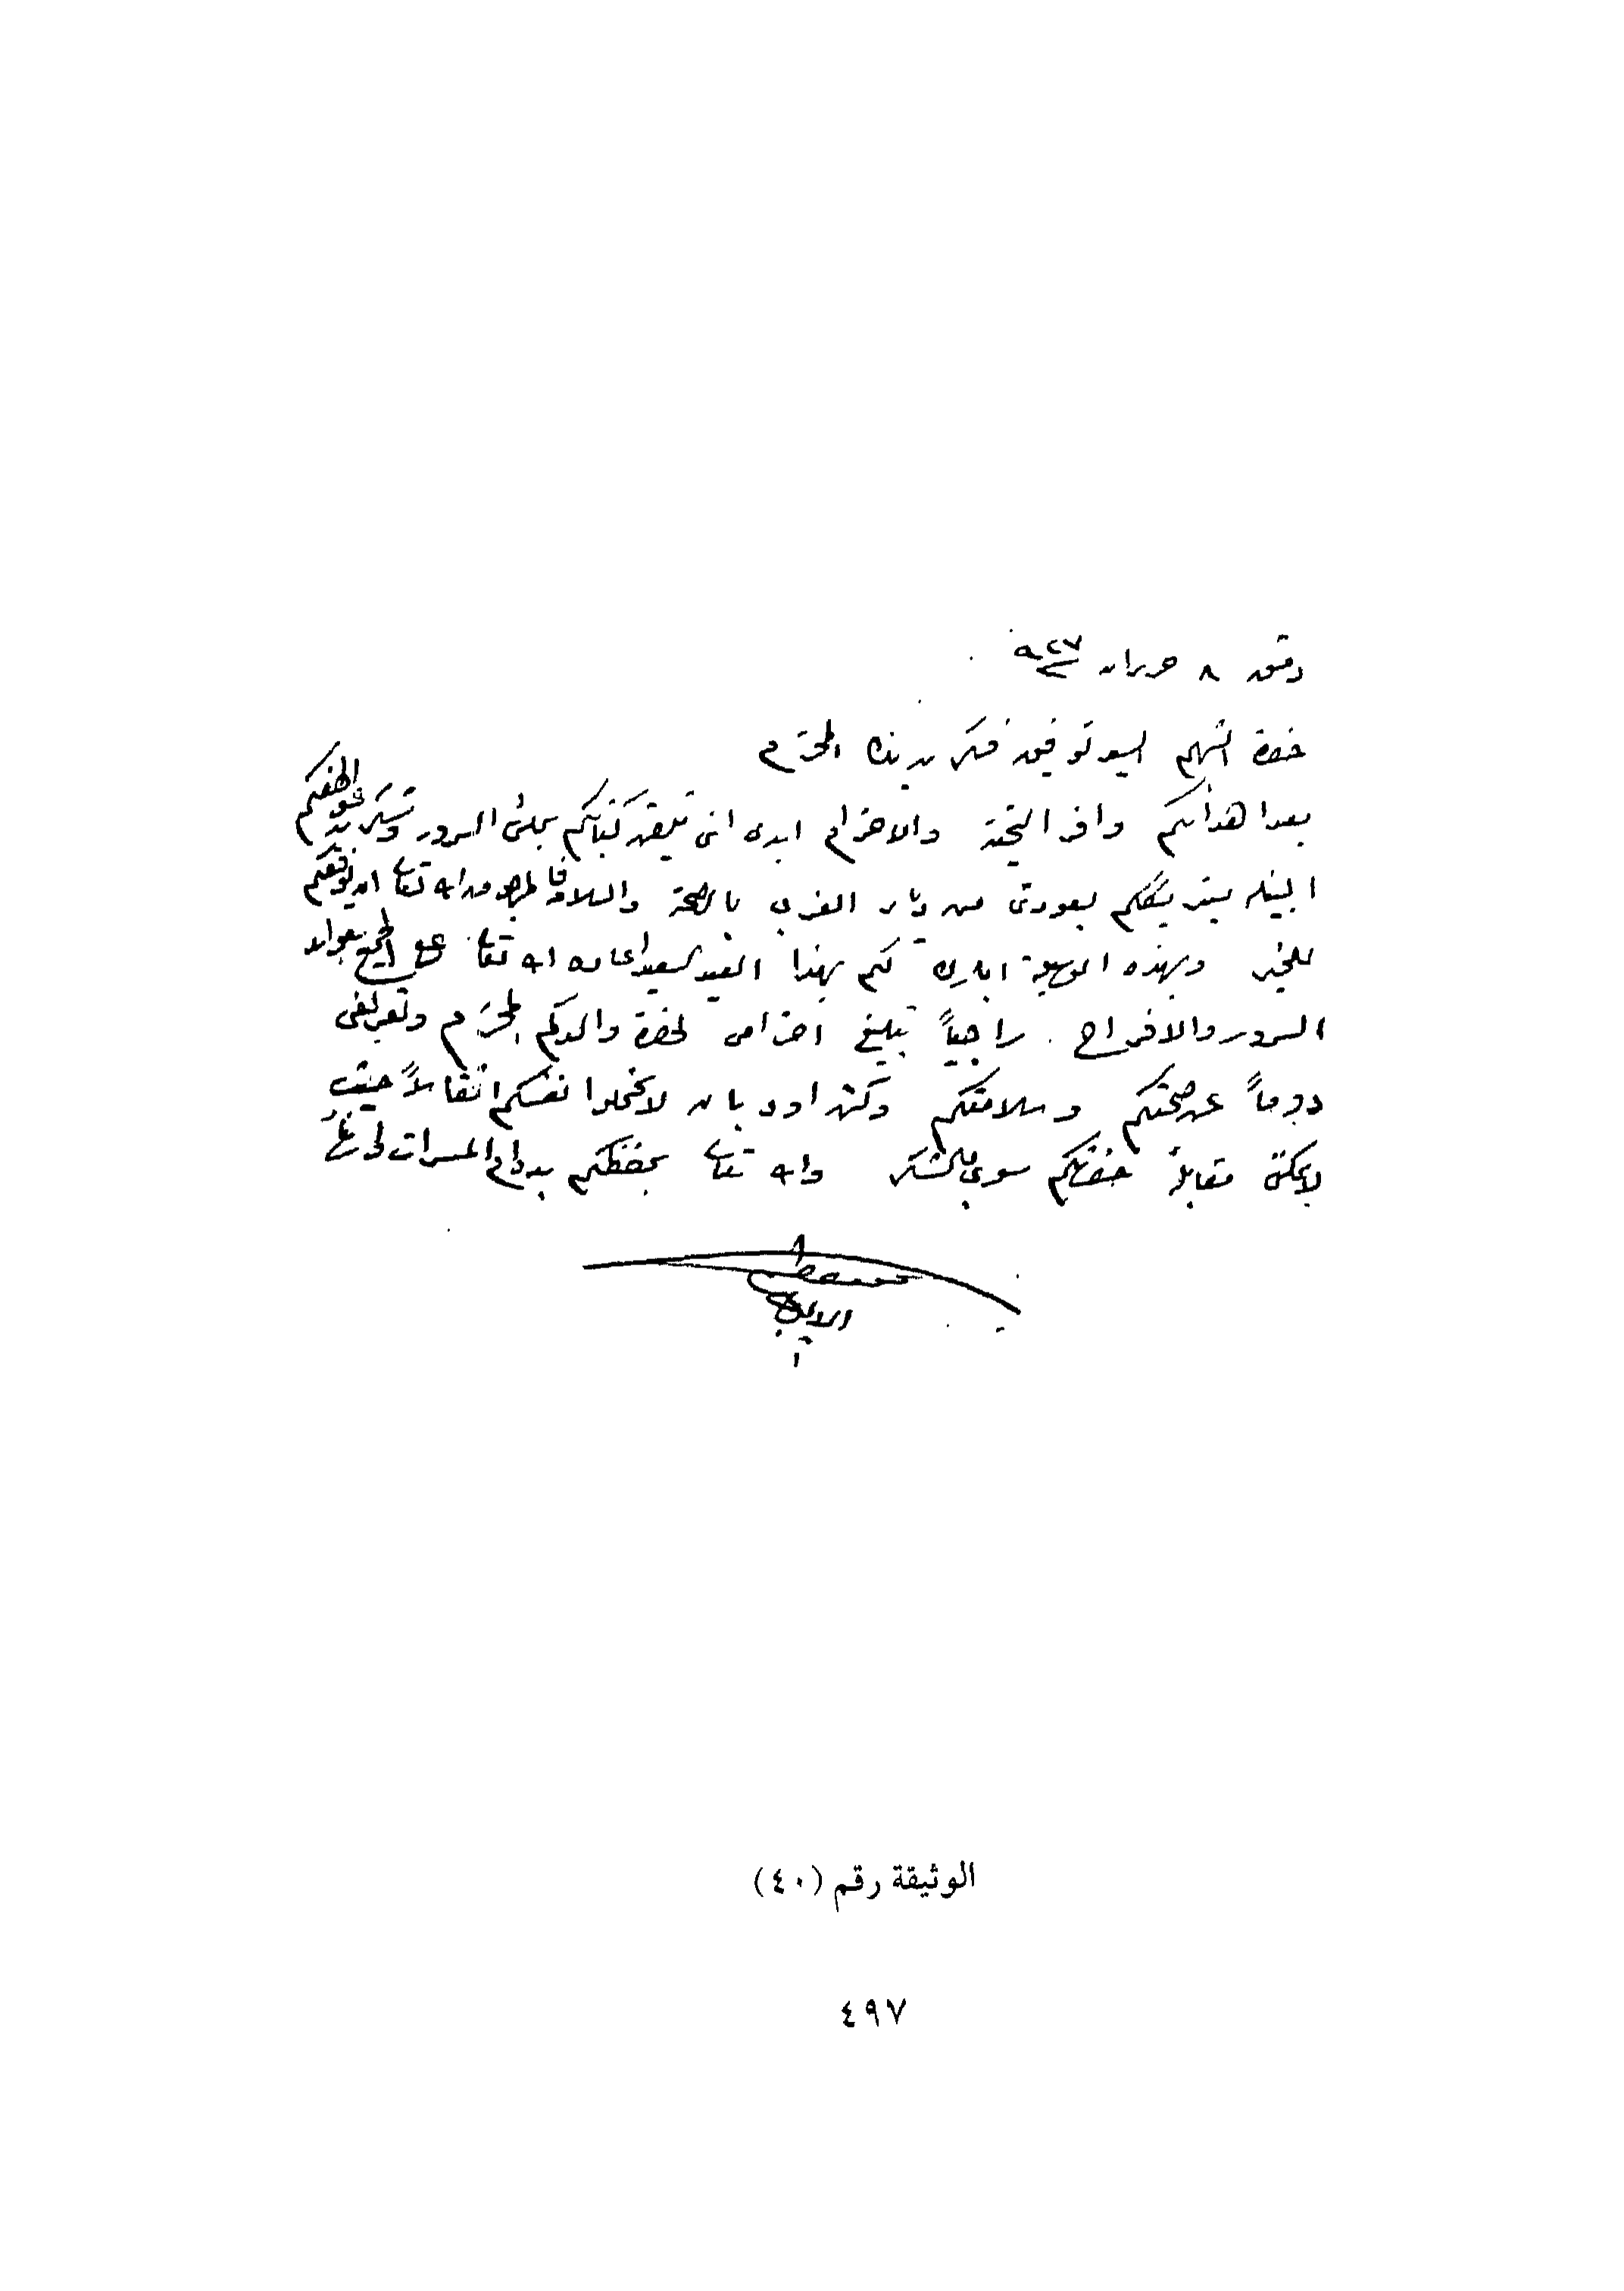 دمشق ٨ حزيران ٩٢٧
حضرة الشهم السيد توفيق فكرت المحترم
بعد اهدائكم وافر التحية والاحترام ابدي اني تلقيت كتابكم بملئ السرور وشكرت عواطفكم
لتبريككم بعودتي من ديار الغرب بالصحة والسلامة فالمرجو من الله تعالى ان يوفقكم
للخير وبهذه الوسيلة ابارك لكم بهذا العيد السعيد اعاده الله تعالى على الجميع
السرور والافراح . راجياً تبليغ احترامي لحضرة والدكم المحترم وتعريفي
دوماً عن صحتكم وسلامتكم ولكن اود بان لا تحملوا نفسكم اثقالاً حيث
لا يمكن مقابلة حضرتكم سوى بالشكر والله تعالى يحفظكم بدوام المسرات
الوثيقة رقم (٤٠)
٤٩٧